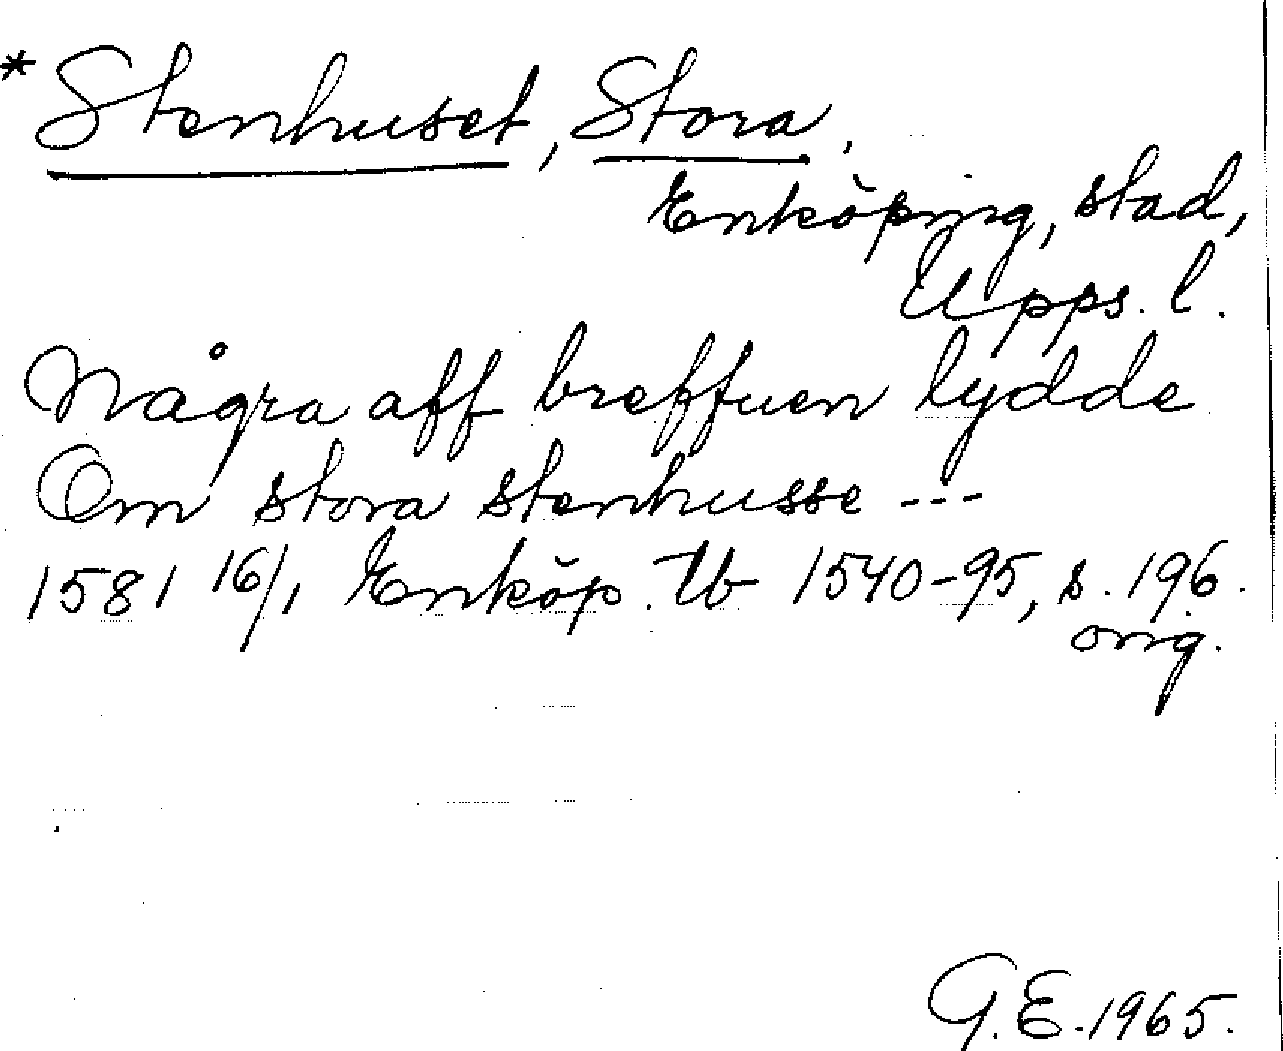 * Stenhuset, Stora.
Enköping, stad,
Upps. l.
Några aff breffuen lydde
Om stora stenhusse ---
1581 16/1 Enköp. tb 1540-95, s. 196.
orig.
G.E. 1965.